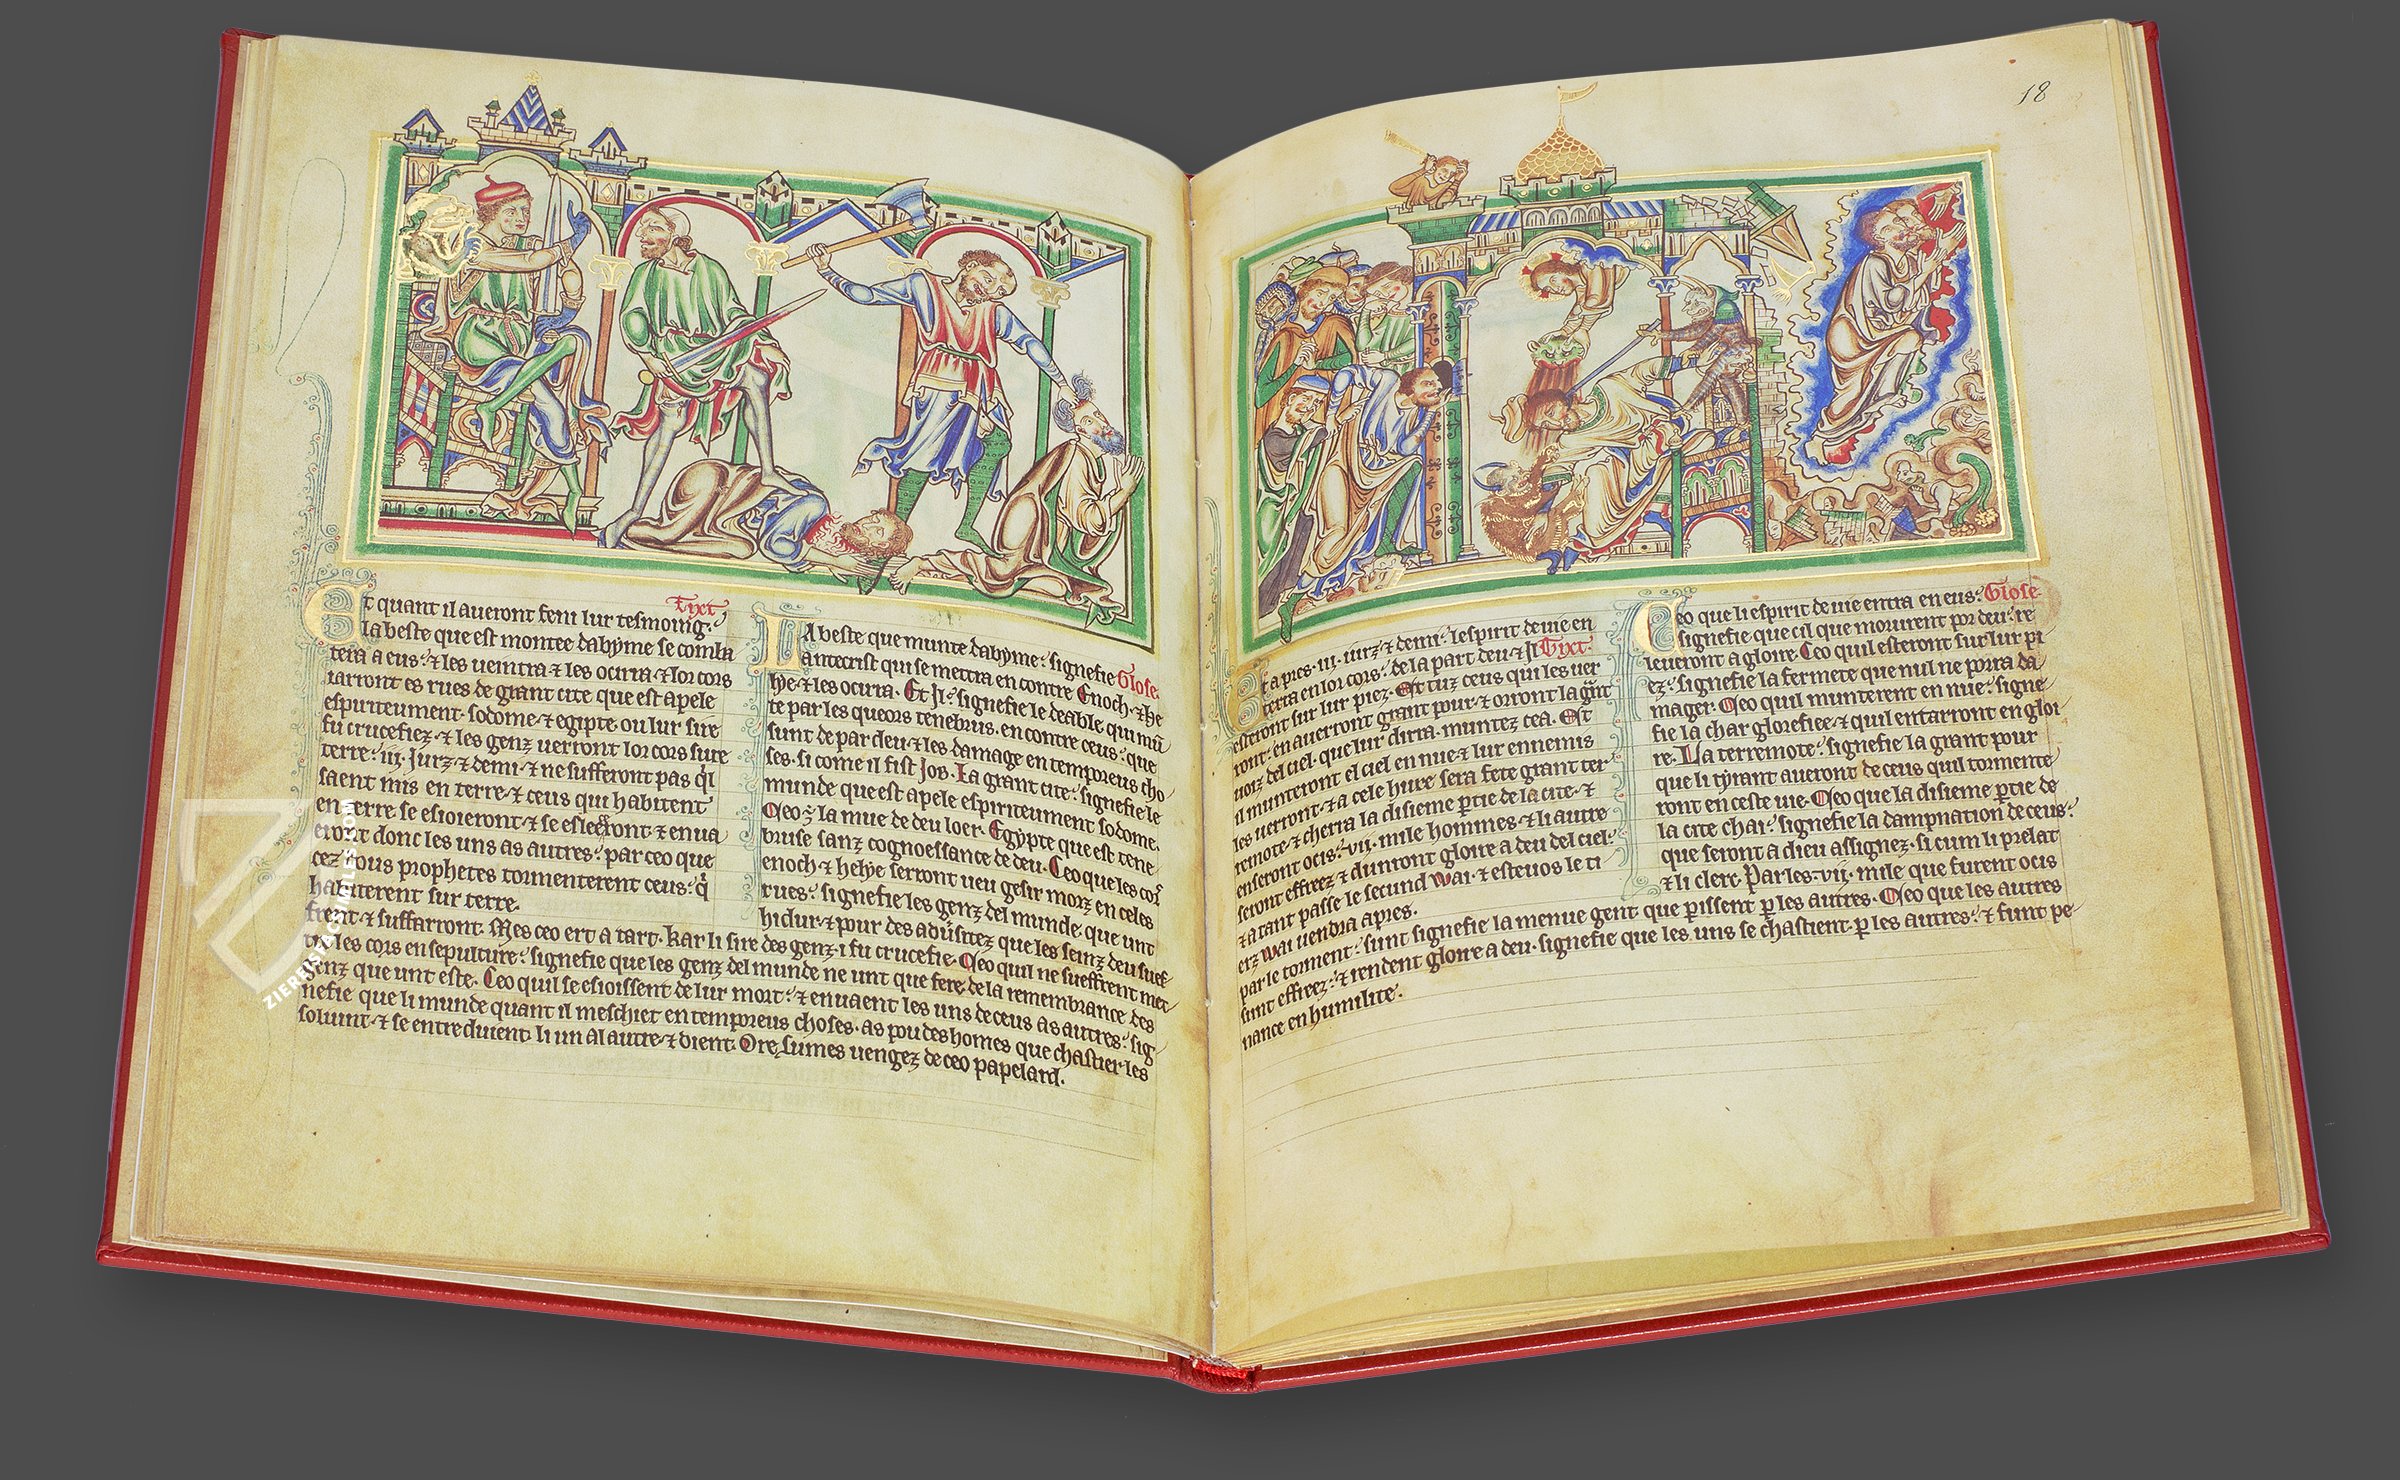 18
Tixt
Et quant il aueront feni lur tesmoing.
la beste que est montee dabyme se comba
tera a eus. ⁊ les ueintra ⁊ les ocira ⁊ lor cors
iarront es rues de grant cite que est apele
espiriteument. sodome ⁊ egipte ou lur sire
fu crucefiez. ⁊ les genz uerront lor cors sure
terre. iii. iurz ⁊ demi. ⁊ ne sufferont pas qͥl
saent mis en terre. ⁊ ceus qui habitent
en terre se esioieront ⁊ se esleeront ⁊ enua
eront donc les uns as autres. par ceo que
cez tous prophetes tormenterent ceus. qͥ
habiterent sur terre.
La beste que munte dabyme. signefie Glose.
antecrist qui se mettra en contre Enoch. ⁊ he
lye. ⁊ les ocirra. Et Il. signefie le deable qui mū
te par les queors tenebrus. en contre ceus. que
sunt de par deu. ⁊ les damage en temporeus cho
ses. si come il fist Iob. La grant cite. signefie le
munde que est apele espiriteument sodome.
la mue de deu loer. Egypte que est tene
bruse sanz cognoessance de deu. Ceo que les cors
enoch ⁊ helye serront ueu gesir morz en celes
rues. signefie les genz del munde. que unt
hidur. ⁊ pour des aduersitez que les seinz deu suef
frent ⁊ suffarront. Mes ceo ert a tart. kar li sire des genz. i fu crucefie. Ceo quil ne sueffrent met
tre les cors en sepulture. signefie que les genz del munde ne unt que fere de la remembrance des
genz que unt este. Ceo quil se esioissent de lur mort. ⁊ enuaent les uns de ceus as autres. sig
nefie que li munde quant il meschiet en temporeus choses. as pou des homes que chastier les
solunt. ⁊ se entreduient li un al autre. ⁊ dient. Ore sumes uengez de ceo papelard.
Et apres .iii. iurz ⁊ demi. lespirit de uie en
terra en lor cors. de la part deu. ⁊ Il Tixt.
esteront sur lur piez. Et tuz ceus qui les uer
ront. en aueront grant pour. ⁊ orront la gn̄t
uoiz del ciel. que lur dirra. muntez cea. Et
il munteront el ciel en nue ⁊ lur ennemis
les uerront. ⁊ a cele hure sera fete grant ter
remote. ⁊ cherra la disieme partie de la cite. ⁊
enseront ocis. vii. mile hommes. ⁊ li autre
seront effreez ⁊ dunront gloire a deu del ciel.
⁊ a tant passe le secund wai. ⁊ esteuos le ti
erz wai uendra apres.
Ceo que li espirit de uie entra en eus. Glose.
signefie que cil que morurent por deu. re
leueront a gloire. Ceo quil esteront sur lur pi
ez. signefie la fermete que nul ne porra da
mager. Ceo quil munterent en nue. signe
fie la char glorefiee. ⁊ quil entarront en gloi
re. La terremote. signefie la grant pour
que li tyrant aueront de ceus quil tormente
ront en ceste uie. Ceo que la disieme partie de
la cite chai. signefie la dampnation de ceus.
que seront a dieu assignez. si cum li prelat
⁊ li clerc. Par les .vii. mile que furent ocis
par le torment. sunt signefie la menue gent que perissent per les autres. Ceo que les autres
sunt effreez. ⁊ rendent gloire a deu. signefie que les uns se chastient. per les autres. ⁊ funt pe
nance en humilite.
ZIEREIS FACSIMILES.COM